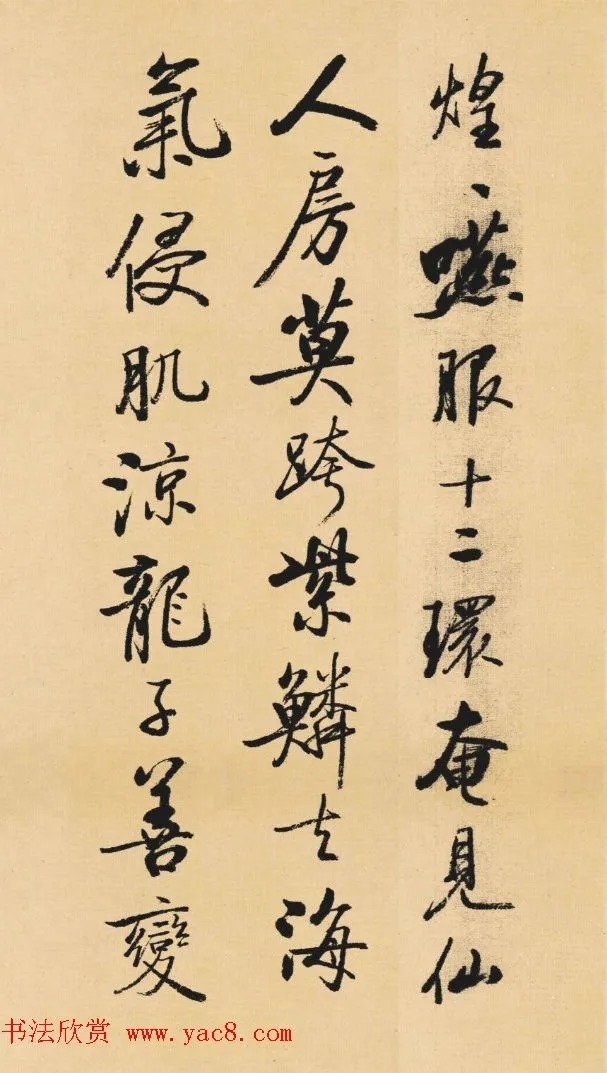 煌、嚥服十二環奄見仙
人房莫跨紫鱗去海
氣侵肌涼龍子善變
书法欣赏 www.yac8.com